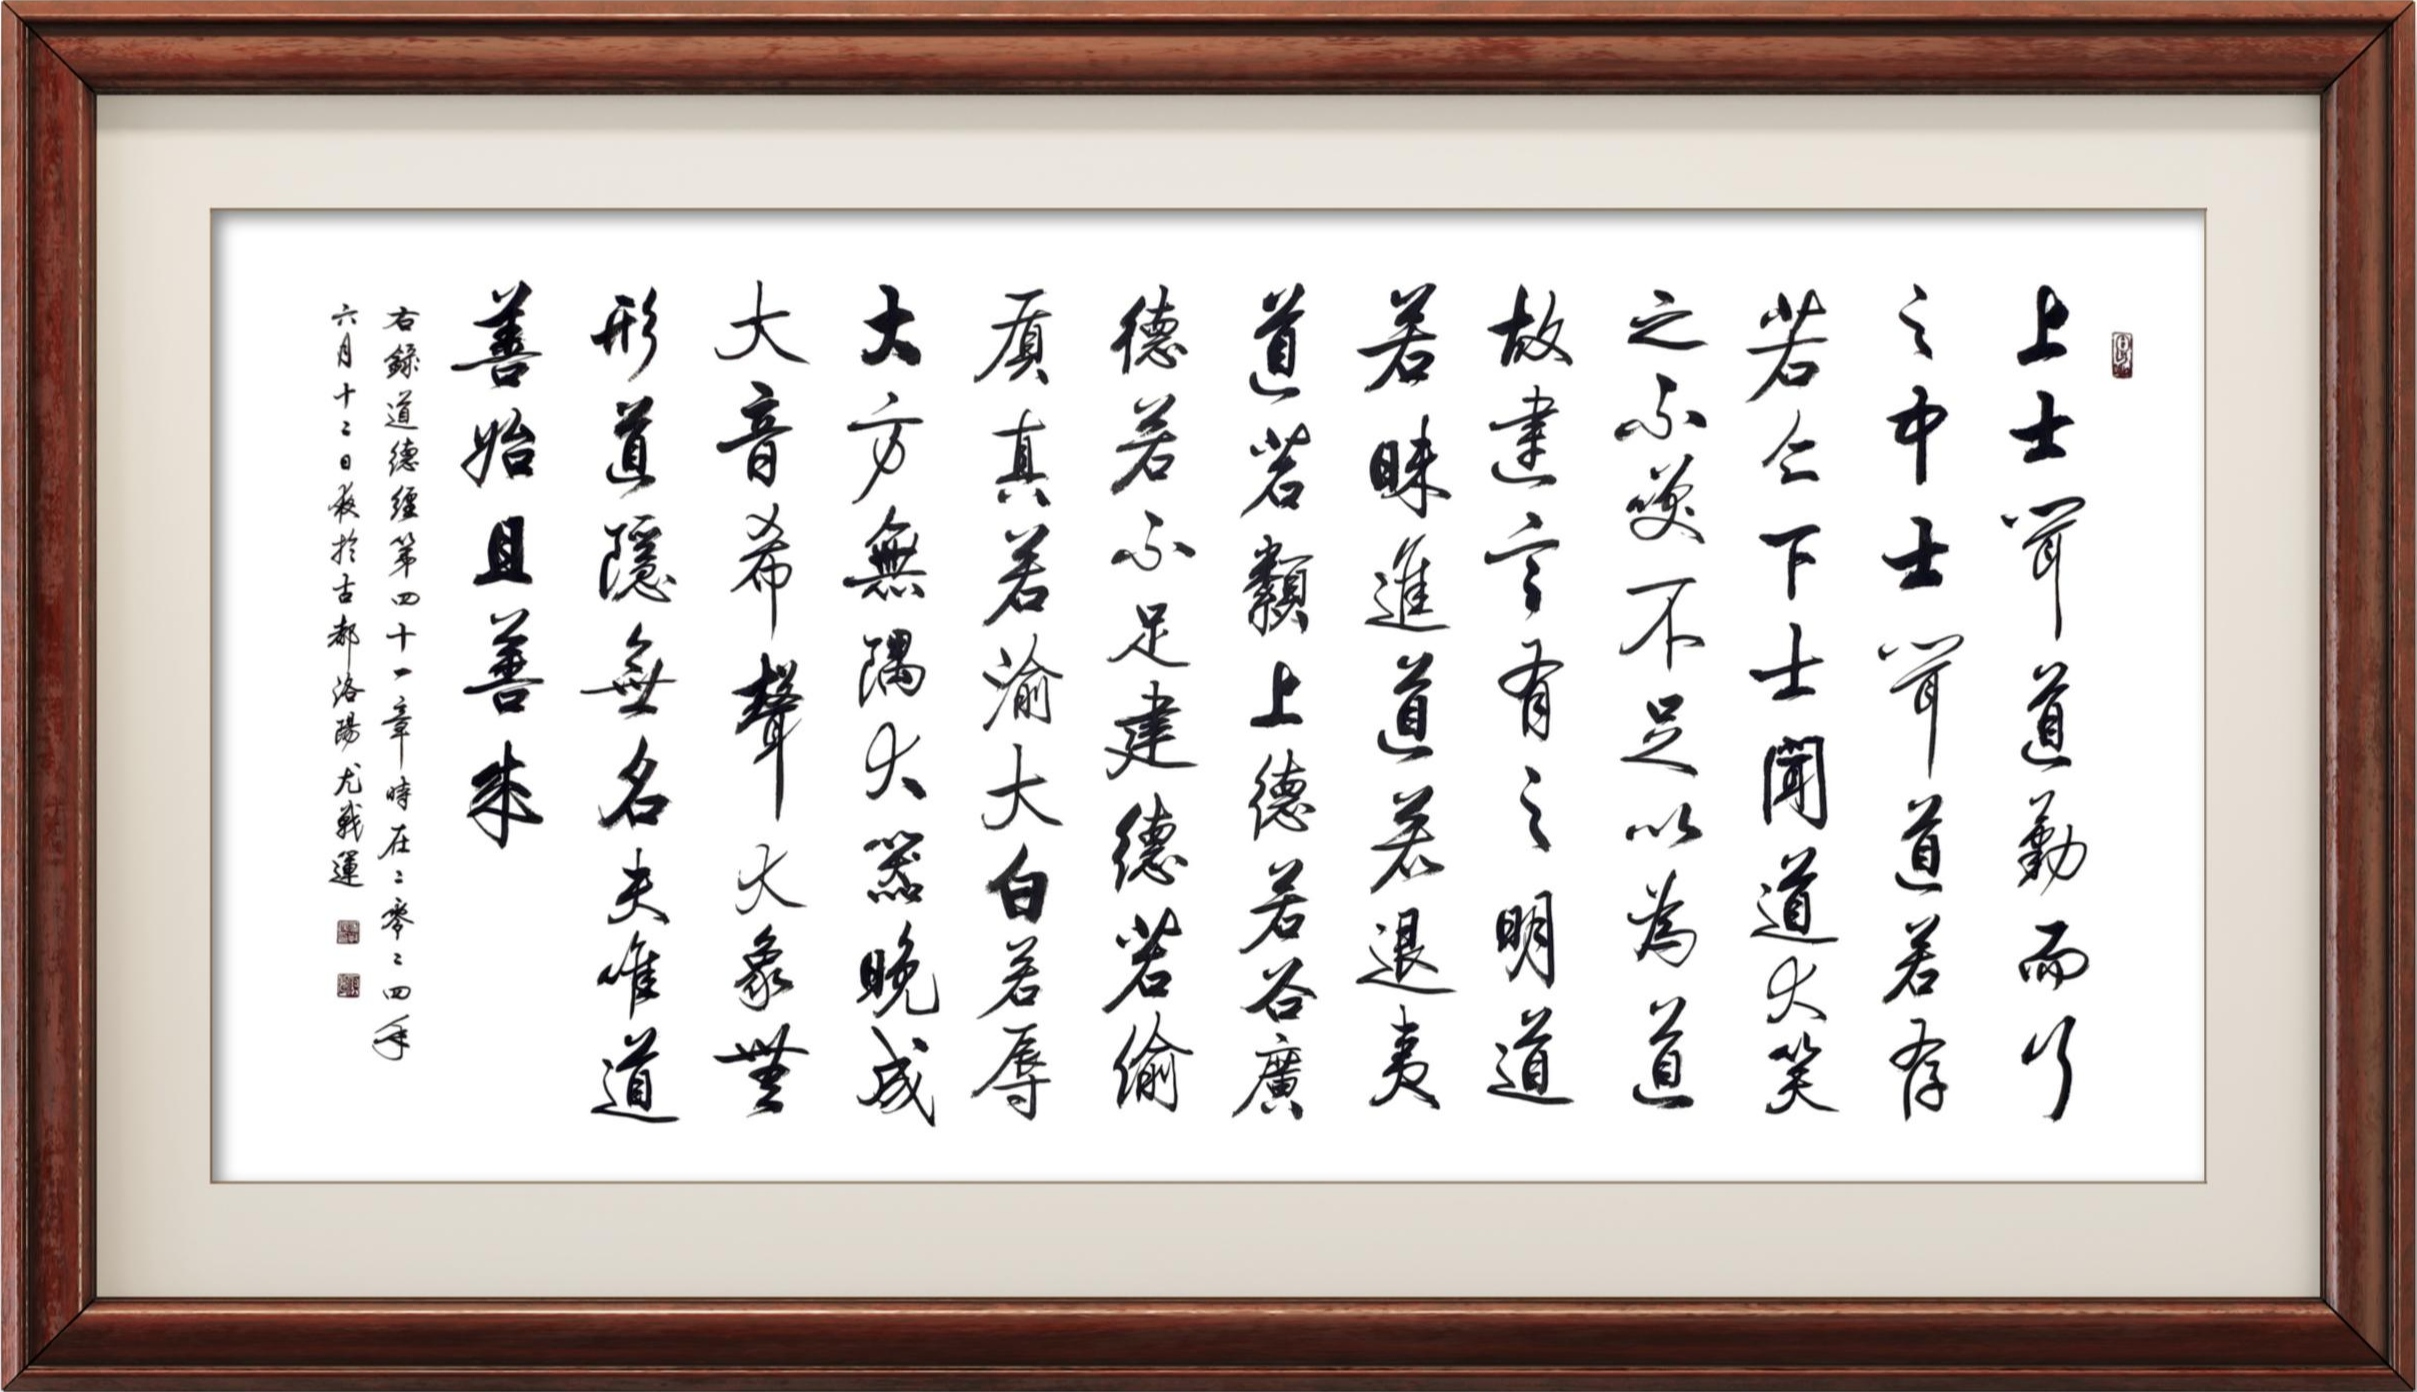 上士聞道勤而行
之中士聞道若存
若亡下士聞道大笑
之不咲不足以為道
故建言有之明道
若昧進道若退夷
道若纇上德若谷廣
德若不足建德若偷
質真若渝大白若辱
大方無隅大器晚成
大音希聲大象無
形道隱無名夫唯道
善始且善成
右錄道德經第四十一章時在二零二四年
六月十二日夜於古都洛陽尤戰運